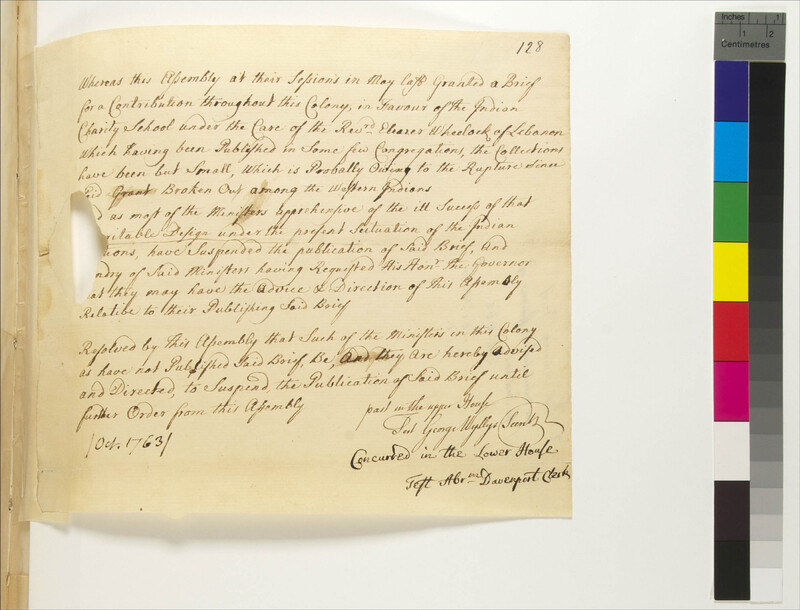 128
Whereas this Assembly at their Sessions in May last Granted a Brief
for a Contribution throughout this Colony, in Favour of the Indian
Charity School under the Care of the Revrd Eleazer Wheelock of Lebanon
which having been Published in Some few Congregations, the Collections
have been but Small, which is Probally Owing to the Rupture Since
Grant Broken Out among the Western Indians
as most of the Ministers apprehensive of the ill Success of that
ritable Design under the present Scituation of the Indian
tions, have Suspended the publication of Said Brief, And
ndry of Said Ministers having Requested His Honr the Governor
at they may have the Advice & Direction of this Assembly
Relative to their Publishing Said Brief
Resolved by this Assembly that Such of the Ministers in this Colony
as have not Published Said Brief, Be, And they Are hereby Advised
and Directed, to Suspend, the Publication of Said Brief until
further Order from this Assembly
past in the upper House
Test George Wyllys Secret
[Oct. 1763]
Concurded in the Lower House
Test Abrm Davenport Clerk
Inches
1
1
2
Centimetres